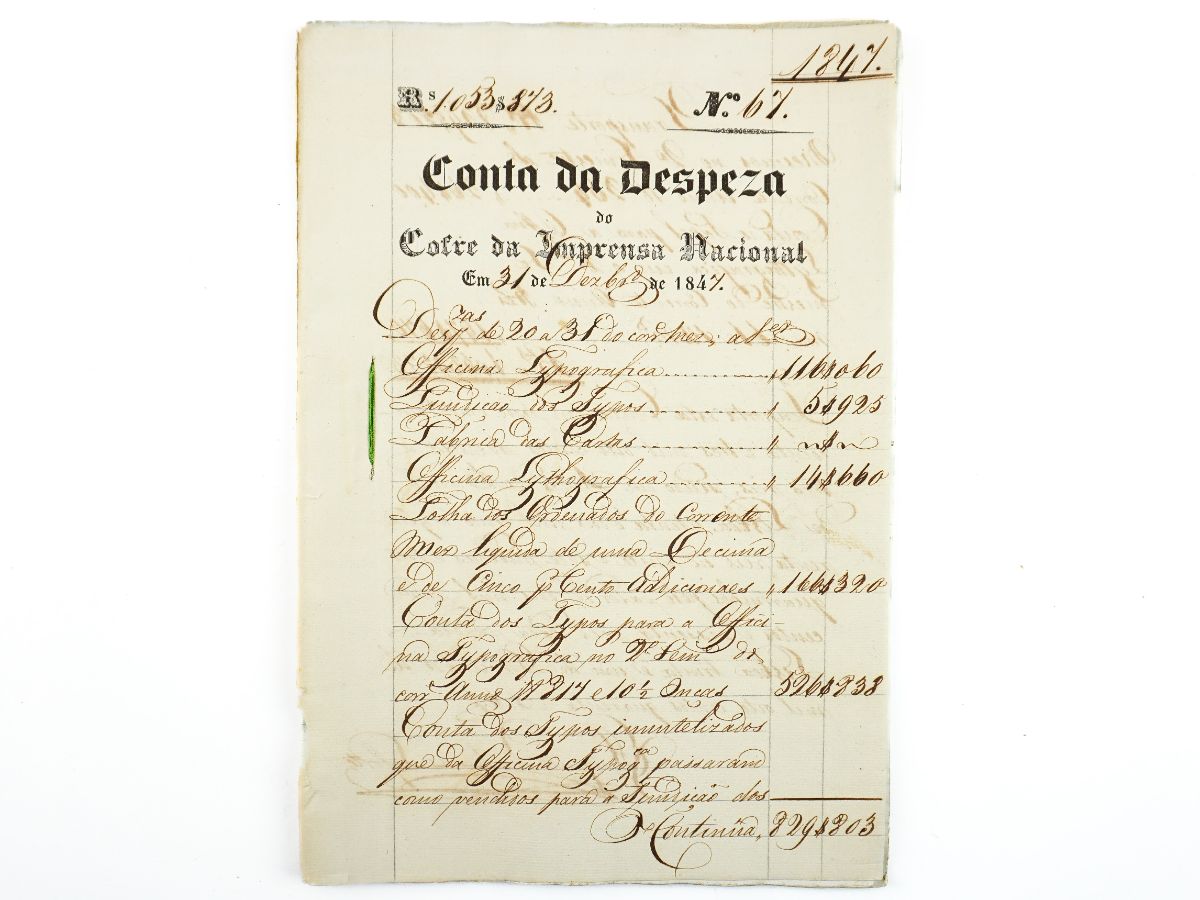 1847.
Rs. 1.053$873. No. 67.
Conta da Despeza
do
Cofre da Imprensa Nacional
Em 31 de Dezbro de 1847.
Dezpas de 20 a 31 do corre mez; a
Officina Typografica " 116$060
Fundição dos Typos " 5$925
Fabrica das Cartas " $
Officina Lythografica " 14$660
Folha dos Ordenados do Corrente
Mez liquida de uma Decima
e de Cinco p Cento Addicionaes " 166$320
Conta dos Typos para a Offici-
na Typografica no 2º Seme do
corre Anno 817 e 10½ Oncas 526$838
Conta dos Typos innutelizados
que da Officina Typogca passaram
como vendidos para a Fundição dos
Continúa, 829$803